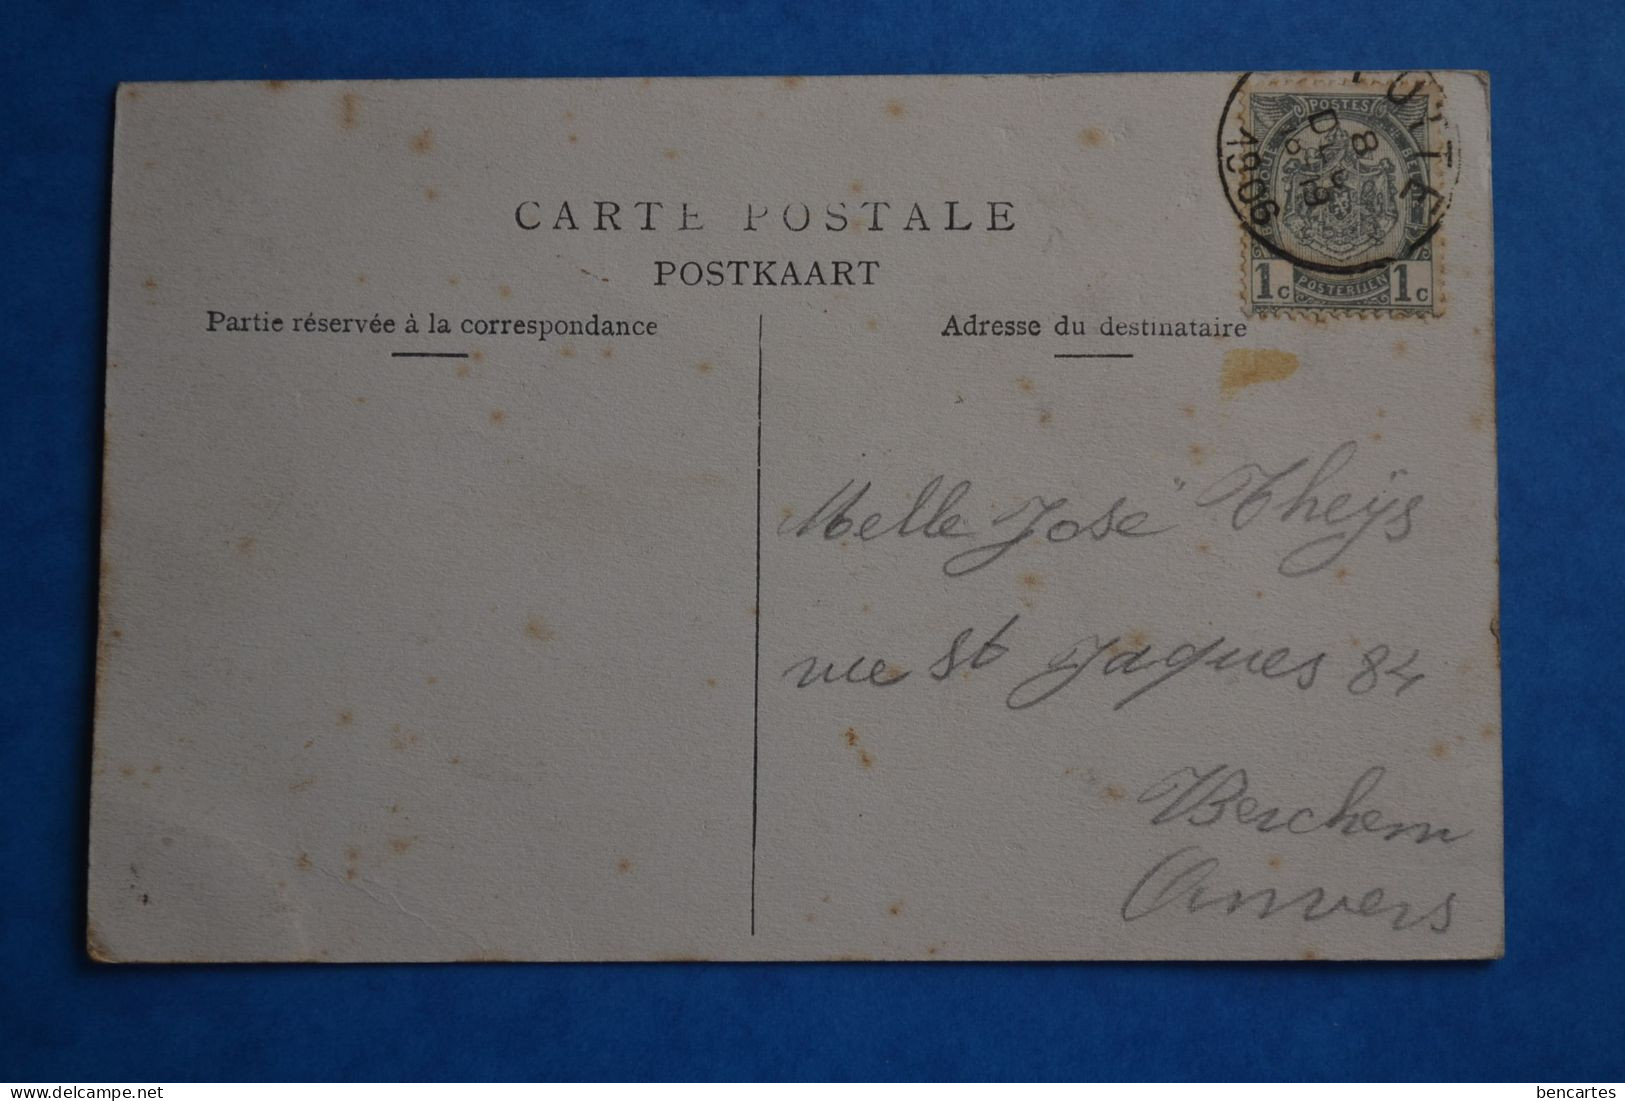 CARTE POSTALE
POSTKAART
Partie réservée à la correspondance
Adresse du destinataire
POSTES
1c POSTERIJEN 1c
1906
8
Melle José Theÿs
rue St Jaques 84
Berchem
Anvers
delcampe.net
bencartes